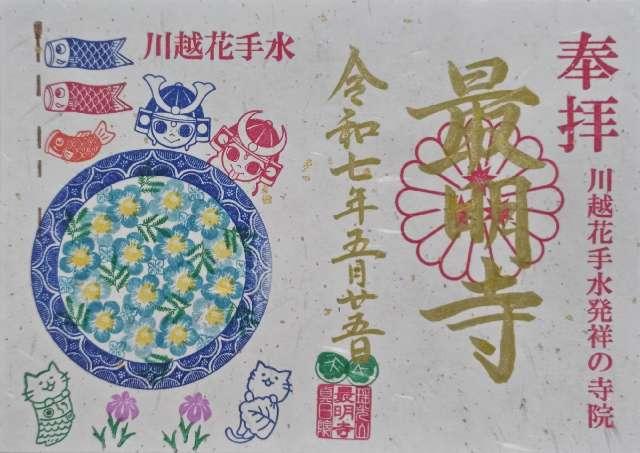 奉拝
川越花手水発祥の寺院
最明寺
令和七年五月廿五日
川越花手水
最明寺